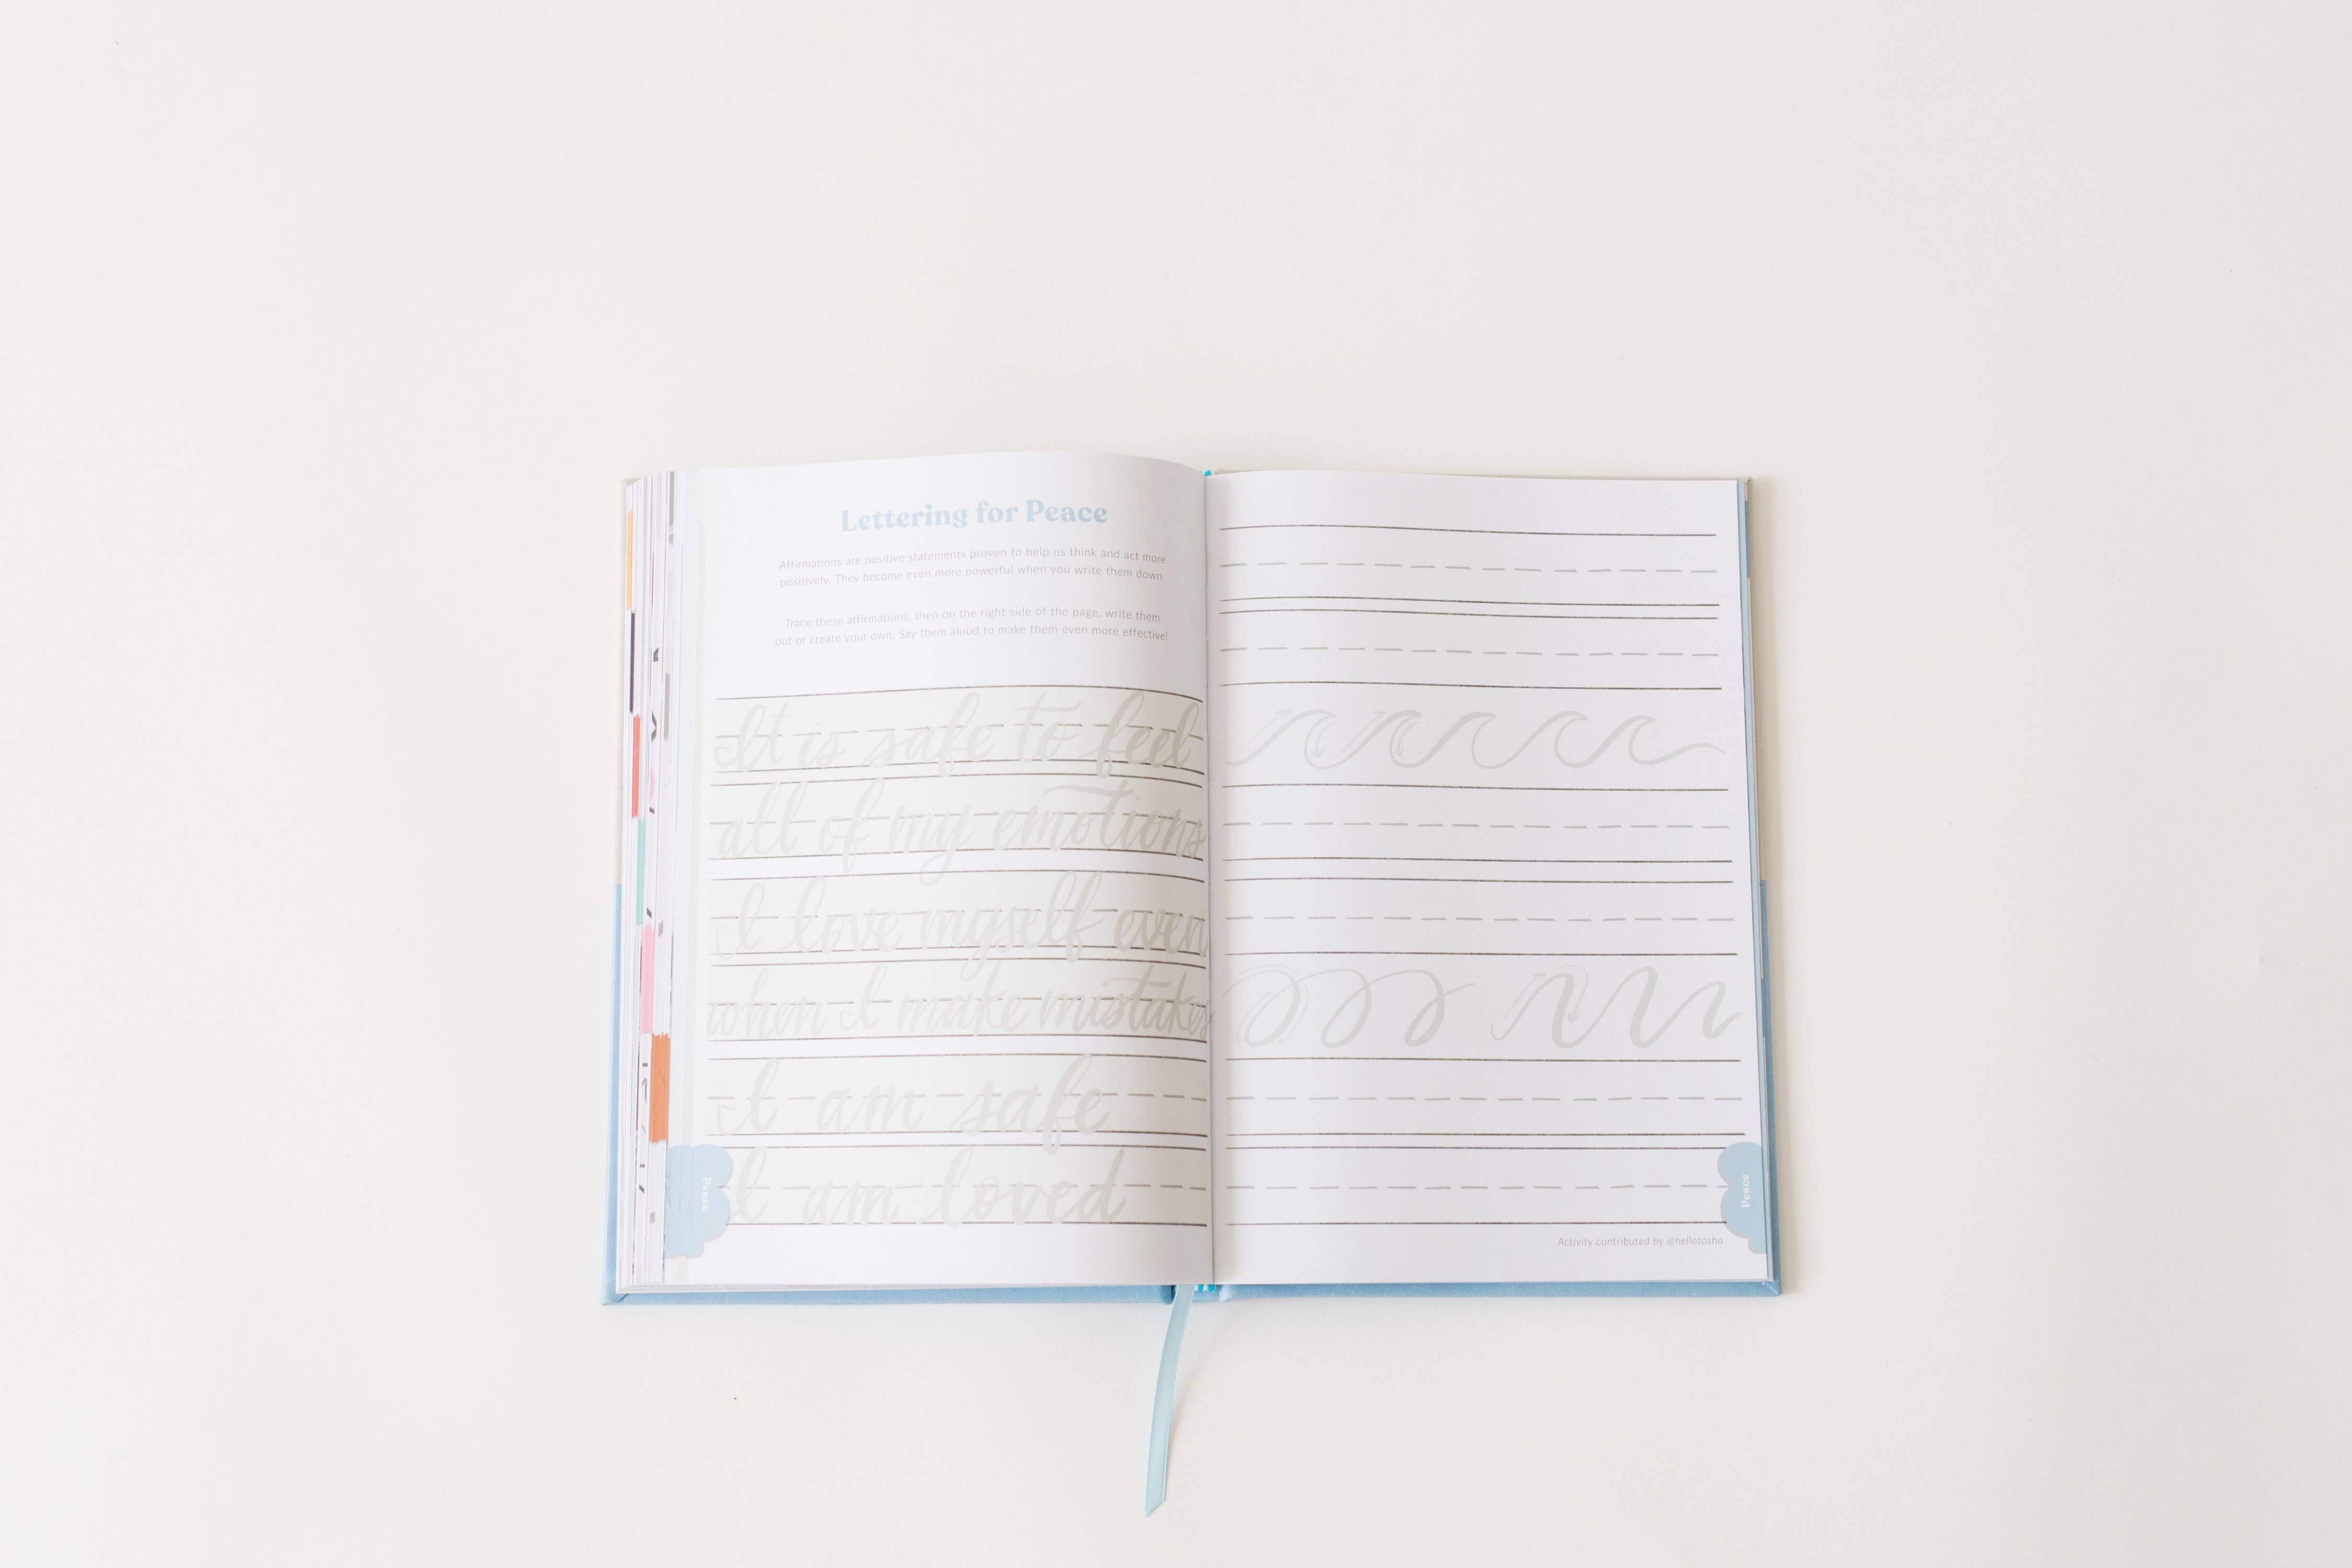 Lettering for Peace
Affirmations are positive statements proven to help us think and act more
positively. They become even more powerful when you write them down.
Trace these affirmations, then on the right side of the page, write them
out or create your own. Say them aloud to make them even more effective!
It is safe to feel
all of my emotions
I love myself even
when I make mistakes
I am safe
I am loved
Peace
Activity contributed by @hellotosha
Peace